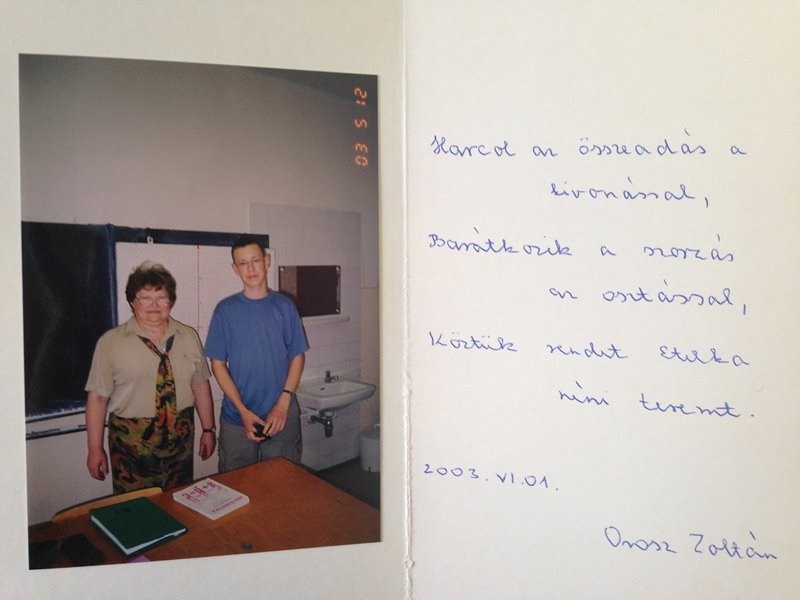 03 5 12
Harcol az összeadás a
kivonással,
Barátkozik a szorzás
az osztással,
Köztük rendet Etelka
néni teremt.
2003. VI. 01.
Orosz Zoltán